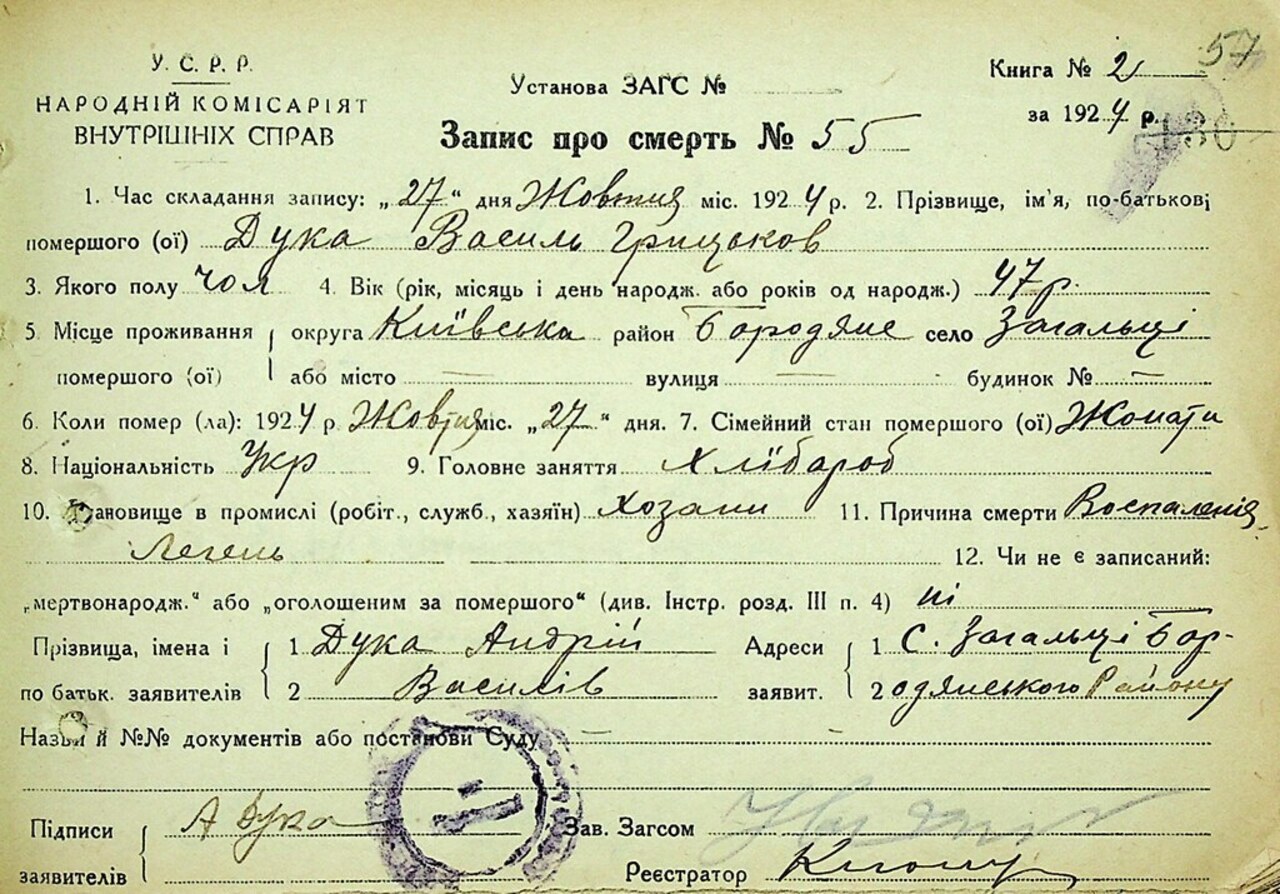 57
У. С. Р. Р.
НАРОДНІЙ КОМІСАРІЯТ
ВНУТРІШНІХ СПРАВ
Установа ЗАГС №
Книга № 2
за 1924 р.
130
Запис про смерть № 55
1. Час складання запису: „27“ дня Жовтня міс. 1924 р. 2. Прізвище, ім'я, по-батькові
помершого (ої) Дука Василь Грицьков
3. Якого полу чол 4. Вік (рік, місяць і день народж. або років од народж.) 47 р.
5. Місце проживання округа Київська район Бородянс село Загальці
помершого (ої) або місто — вулиця — будинок № —
6. Коли помер (ла): 1924 р Жовтня міс. „27“ дня. 7. Сімейний стан помершого (ої) Жонати
8. Національність Укр 9. Головне заняття Хлібароб
10. Становище в промислі (робіт., служб., хазяїн) Хозаин 11. Причина смерти Воспаления
Легень 12. Чи не є записаний:
„мертвонародж.“ або „оголошеним за помершого“ (див. Інстр. розд. III п. 4) ні
Прізвища, імена і 1 Дука Андрій Адреси 1 С. Загальці Бор-
по батьк. заявителів 2 Василів заявит. 2 одянського Району
Назви й №№ документів або постанови Суду —
Підписи А Дука Зав. Загсом
заявителів Реєстратор